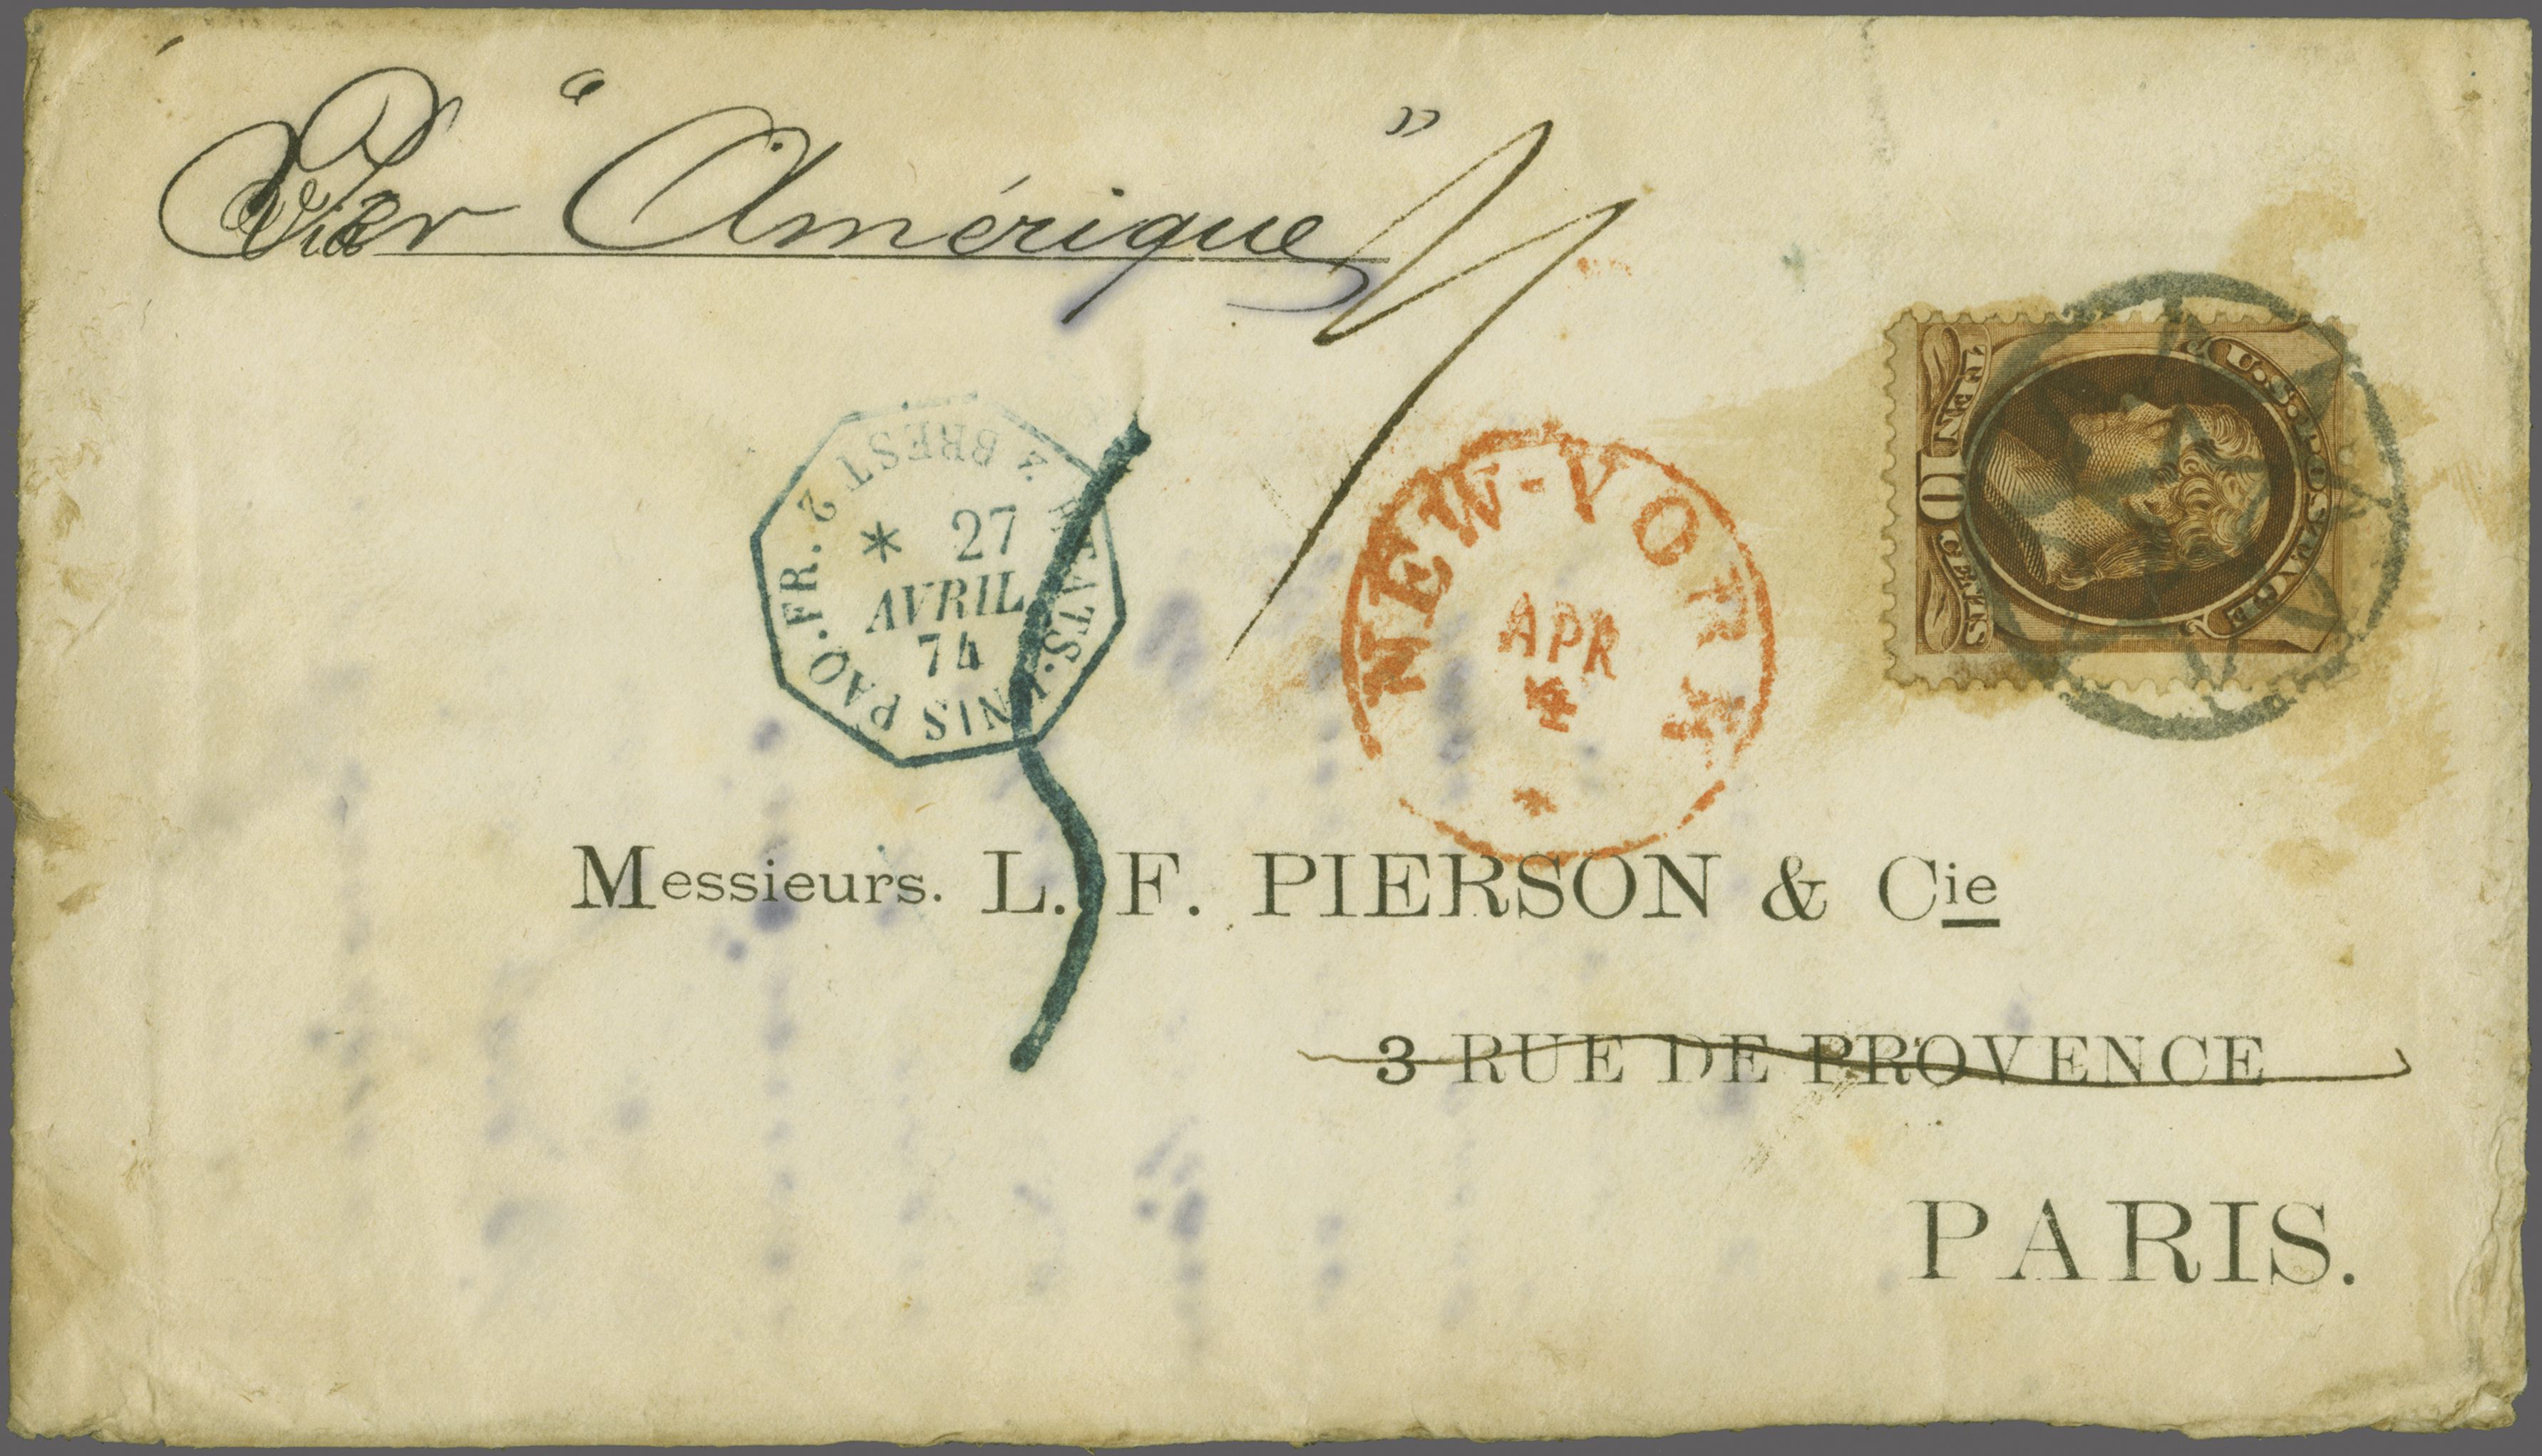 Per "Amérique"
ETATS. UNIS PAQ. FR. 2 BREST 2
* 27
AVRIL
74
NEW-YORK
APR
4
*
U.S. POSTAGE
TEN 10 CENTS
Messieurs. L. F. PIERSON & Cie
3 RUE DE PROVENCE
PARIS.